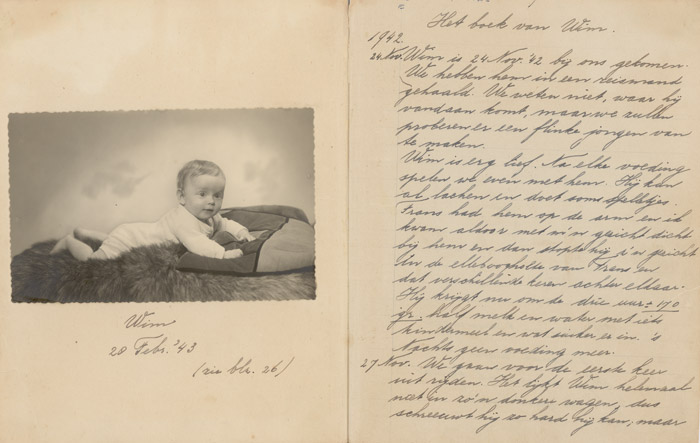 Wim
20 Febr. '43
(zie blz. 26)
Het boek van Wim.
1942.
24 Nov. Wim is 24 Nov. '42 bij ons gekomen.
We hebben hem in een reismand
gehaald. We weten niet, waar hij
vandaan komt, maar we zullen
proberen er een flinke jongen van
te maken.
Wim is erg lief. Na elke voeding
spelen we even met hem. Hij kan
al lachen en doet soms spelletjes.
Frans had hem op de arm en ik
kwam aldoor met m'n gezicht dicht
bij hem en dan stopte hij z'n gezicht
in de elleboogholte van Frans en
dat verschillende keren achter elkaar.
Hij krijgt nu om de drie uur ± 170
gr. half melk en water met iets
kindermeel en wat suiker er in. 's
Nachts geen voeding meer.
27 Nov. We gaan voor de eerste keer
uit rijden. Het lijkt Wim helemaal
niet in zo'n donkere wagen, dus
schreeuwt hij zo hard hij kan, maar